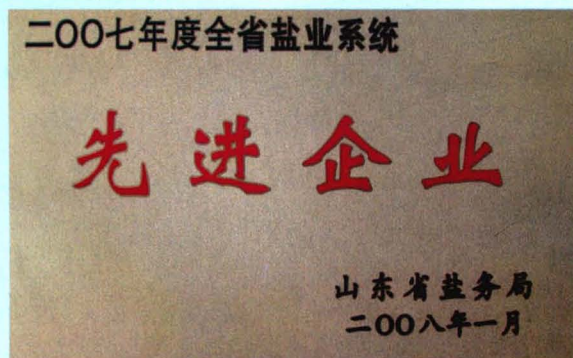 二〇〇七年度全省盐业系统
先进企业
山东省盐务局
二〇〇八年一月